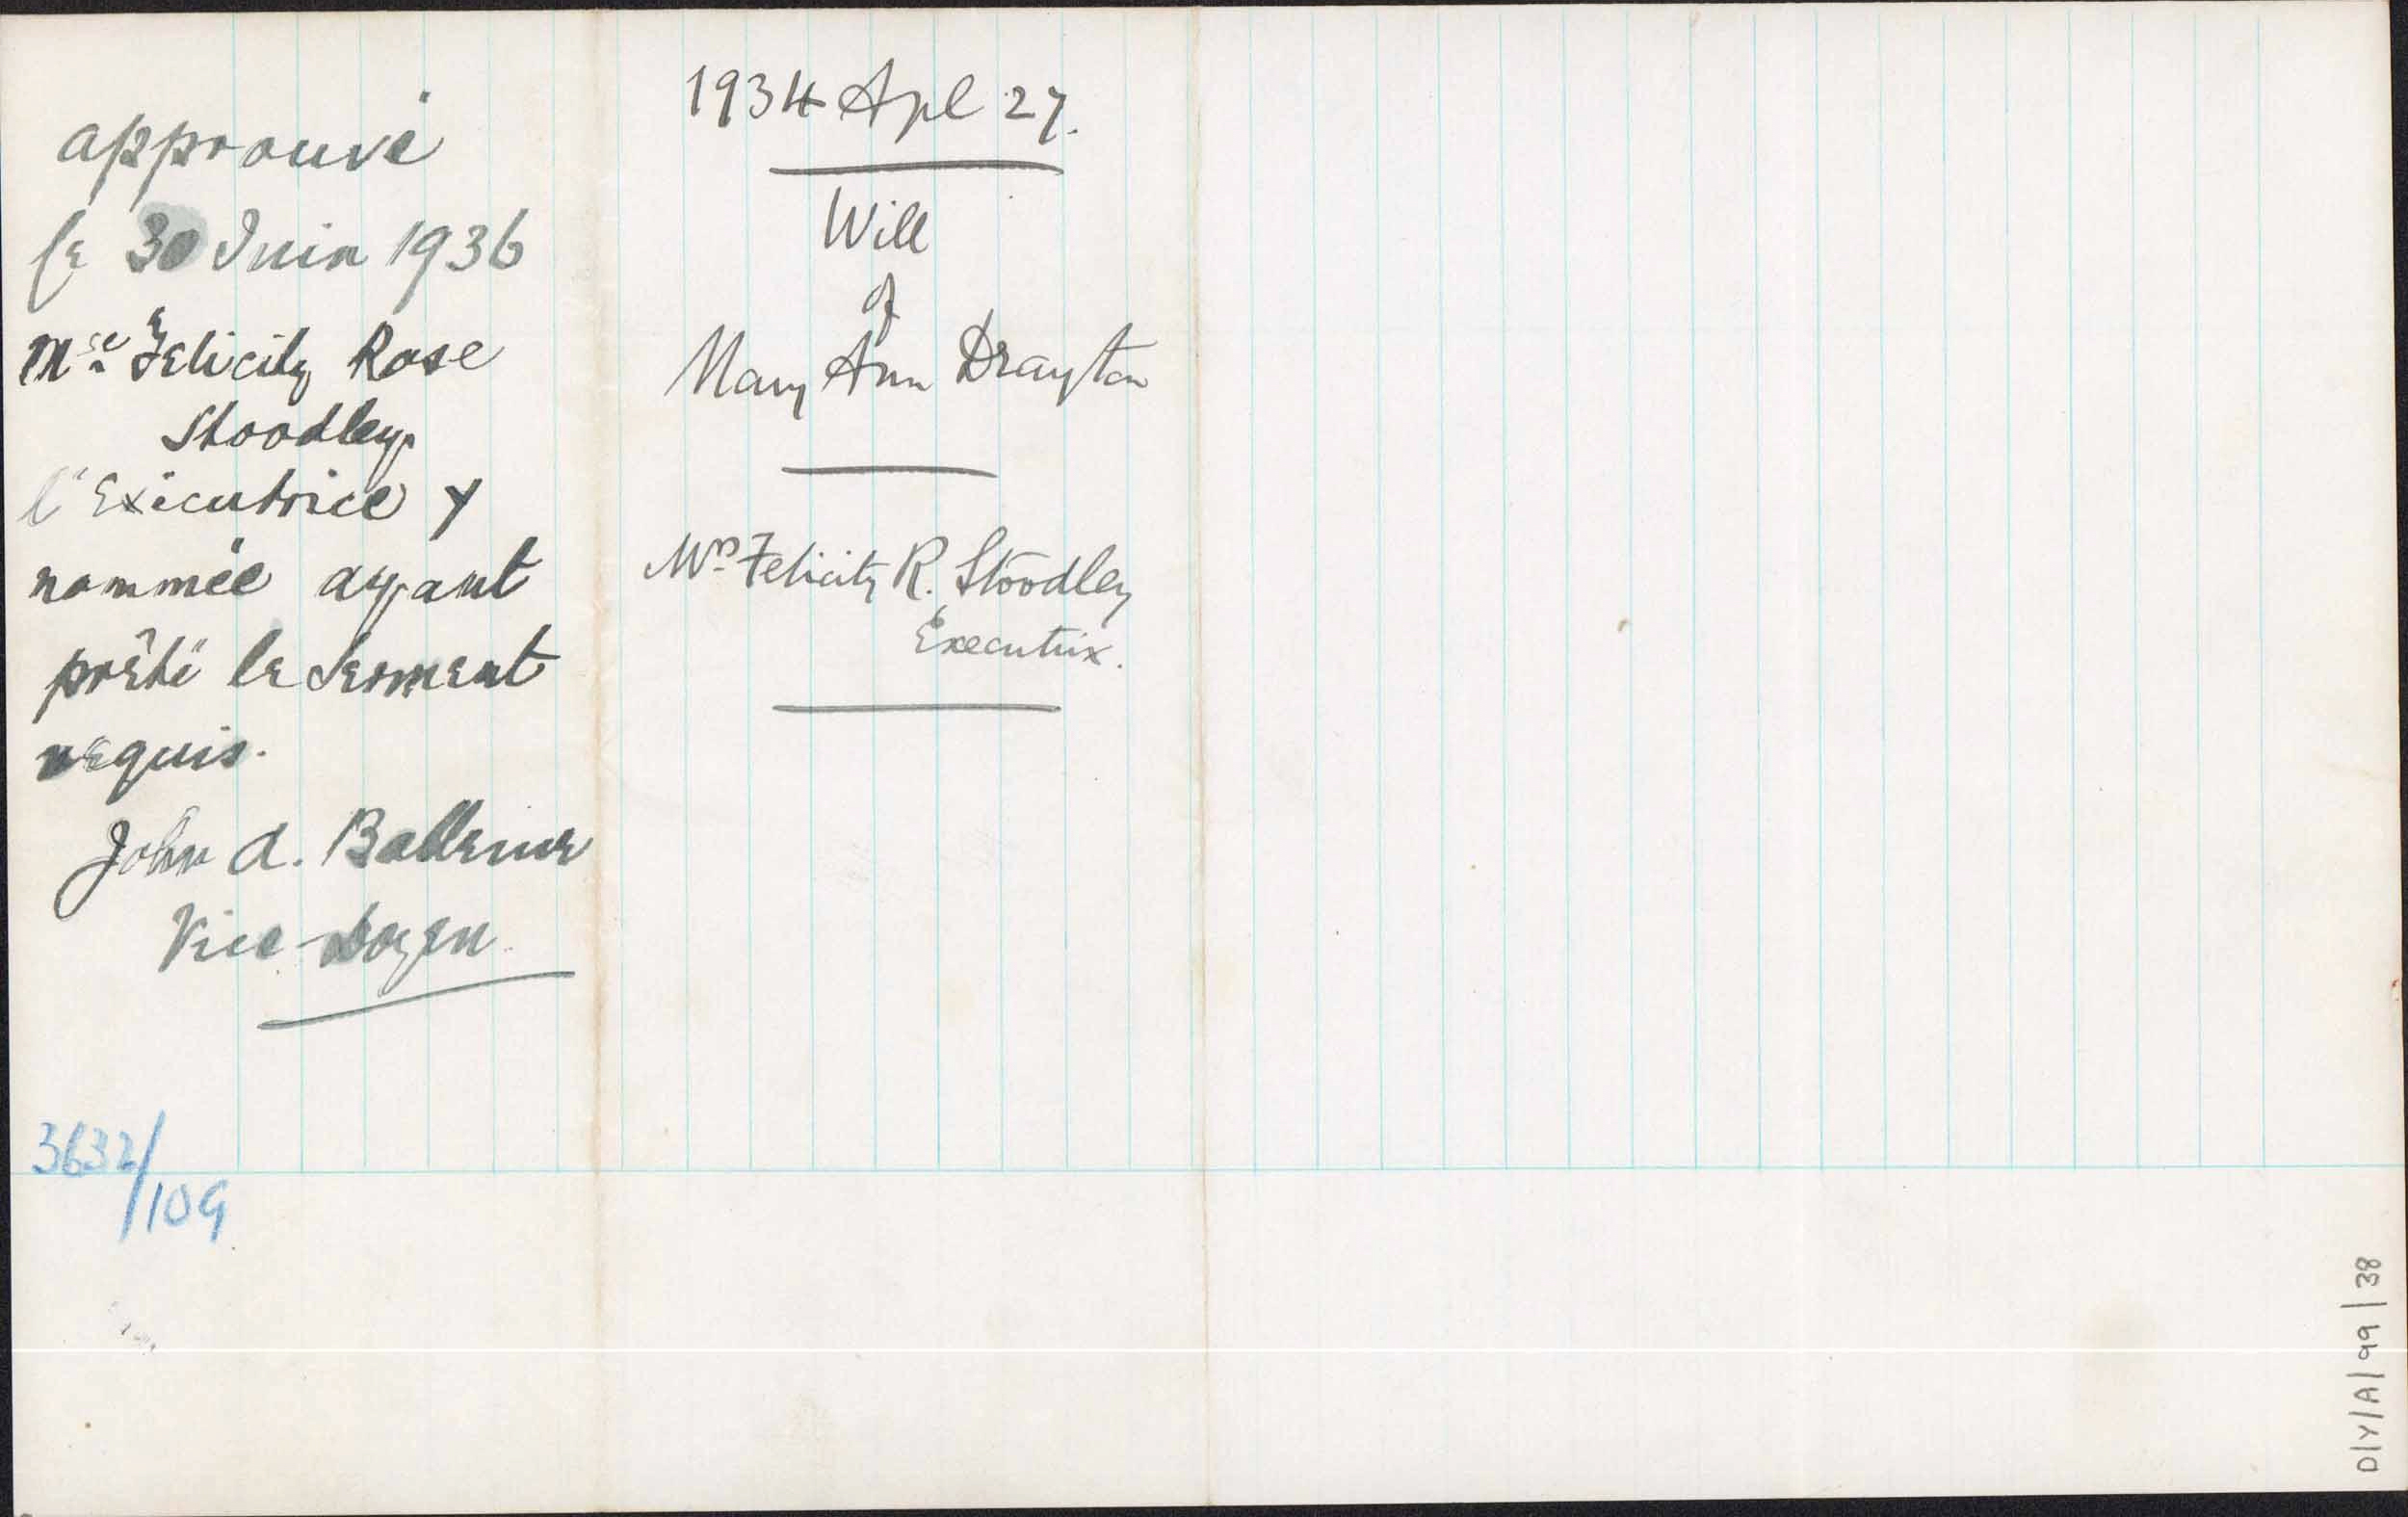 approuvé
le 30 Juin 1936
Mse Felicity Rose
Stoodley
l'Exécutrice y
nommée ayant
prêté le serment
requis.
John A. Balleine
Vice-Doyen
3632/109
1934 Apl 27.
Will
of
Mary Ann Drayton
Mrs Felicity R. Stoodley
Executrix.
D/Y/A/99/38